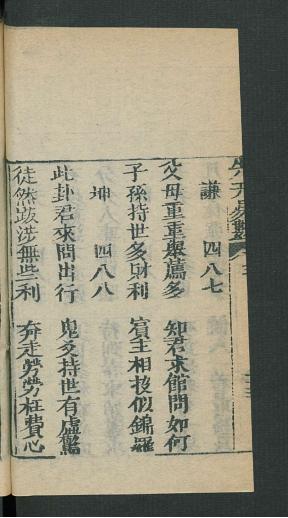 先天易數
謙 四八七
父母重重舉薦多 知君求館問如何
子孫持世多財利 賓主相投似錦羅
坤 四八八
此卦君來問出行 鬼爻持世有虛驚
徒然跋涉無些利 奔走勞勞枉費心